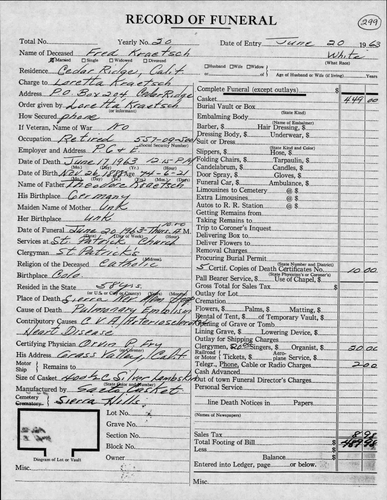 RECORD OF FUNERAL
299
Total No. Yearly No. 20 Date of Entry June 20 1963
Name of Deceased Fred Kraetsch White
Married Single Widowed Divorced Husband Wife Widow (What Race)
Residence Cedar Ridge, Calif. Age of Husband or Wife (if living)
Charge to Loretta Kraetsch
Address P.O. Box 204 Cedar Ridge
Order given by Loretta Kraetsch
How Secured phone
If Veteran, Name of War No
Occupation Retired
Employer and Address P G & E
Date of Death June 17, 1963 12:15 P.M.
Date of Birth Nov 26, 1888 Age 74-6-21
Name of Father Theodore Kraetsch
His Birthplace Germany
Maiden Name of Mother Unk
Her Birthplace Unk
Date of Funeral June 20 1963 Thurs. A.M.
Services at St. Patrick Church
Clergyman St. Patrick's
Religion of the Deceased Catholic
Birthplace Colo
Resided in the State 58 yrs.
Place of Death Sierra Nev. Mem. Hosp
Cause of Death Pulmonary Embolism
Contributory Causes C.V.A. Arteriosclerotic
Heart Disease
Certifying Physician Orvin P. Fry
His Address Grass Valley, Calif.
Motor Ship Remains to
Size of Casket Silver Lambskin
Manufactured by Casket
Cemetery Crematory Sierra Hills
Lot No.
Grave No.
Section No.
Block No.
Owner
Diagram of Lot or Vault
Misc.
Complete Funeral (except outlays)
Casket 449.00
Burial Vault or Box
(State Kind)
Embalming Body
(Name of Embalmer)
Barber, Hair Dressing,
Dressing Body, Underwear,
Suit or Dress
(State Kind and Color)
Slippers, Hose,
Folding Chairs, Tarpaulin,
Candelabrum, Candles,
Door Spray, Gloves,
Funeral Car, Ambulance,
Limousines to Cemetery @ $
Extra Limousines @ $
Autos to R. R. Station @ $
Getting Remains
Taking Remains
Trip to Coroner's Inquest
Delivering Box to
Deliver Flowers to
Removal Charges
Procuring Burial Permit
(State Number and District)
5 Certif. Copies of Death Certificates No. 10.00
Pall Bearer Service, Use of Chapel,
Gross Total for Sales Tax
Outlay for Lot
Cremation
Flowers, Palms, Matting,
Rental of Tent, of Temporary Vault,
Opening of Grave or Tomb
Lining Grave, Lowering Device,
Outlay for Shipping Charges
Clergymen, Singers, Organist, 20.00
Railroad or Motor Tickets, Aeroplane Service,
Telegr., Phone, Cable or Radio Charges 2.00
Cash Advanced
Out of town Funeral Director's Charges
Personal Service
line Death Notices in Papers
(Names of Newspapers)
Sales Tax 8.96
Total Footing of Bill 489.96
Less
Balance
Entered into Ledger, page or below.
Misc.